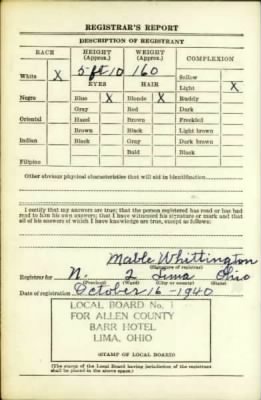 REGISTRAR'S REPORT
DESCRIPTION OF REGISTRANT
RACE HEIGHT (Approx.) WEIGHT (Approx.) COMPLEXION
5 ft 10 160
White X Sallow
EYES HAIR Light X
Negro Blue X Blonde X Ruddy
Gray Red Dark
Oriental Hazel Brown Freckled
Brown Black Light brown
Indian Black Gray Dark brown
Bald Black
Filipino
Other obvious physical characteristics that will aid in identification
I certify that my answers are true; that the person registered has read or has had
read to him his own answers; that I have witnessed his signature or mark and that
all of his answers of which I have knowledge are true, except as follows:
Mable Whittington
(Signature of registrar)
Registrar for N. 2 Lima Ohio
(Precinct) (Ward) (City or county) (State)
Date of registration October 16 - 1940
LOCAL BOARD No. 1
FOR ALLEN COUNTY
BARR HOTEL
LIMA, OHIO
(STAMP OF LOCAL BOARD)
(The stamp of the Local Board having jurisdiction of the registrant
shall be placed in the above space.)